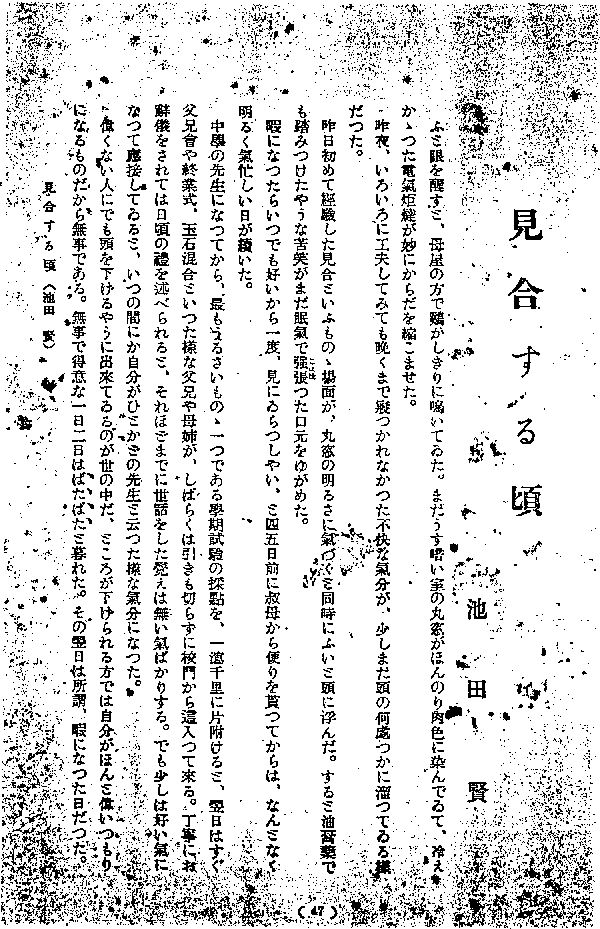 見合する頃
池田賢
ふと眼を醒すと、母屋の方で鶏がしきりに鳴いてゐた。まだうす暗い室の丸窓がほんのり肉色に染んでゐて、冷え
かゝつた電氣炬燵が妙にからだを縮こませた。
昨夜、いろいろに工夫してみても晩くまで寝つかれなかつた不快な氣分が、少しまだ頭の何處つかに溜つてゐる樣
だつた。
昨日初めて經驗した見合といふものゝ場面が、丸窓の明るさに氣づくと同時にふいと頭に浮んだ。すると油蟲で
も踏みつけたやうな苦笑がまだ眠氣で强張つた口元をゆがめた。
暇になつたらいつでも好いから一度、見にゐらつしやい、と四五日前に叔母から便りを貰つてからは、なんとなく
明るく氣忙しい日が續いた。
中學の先生になつてから、最もうるさいものゝ一つである學期試驗の採點を、一瀉千里に片附けると、翌日はすぐ
父兄會や終業式、玉石混合といつた樣な父兄や母姉が、しばらくは引きも切らずに校門から這入つて來る。丁寧にお
辭儀をされては日頃の禮を述べられると、それほどまでに世話をした覺えは無い氣ばかりする。でも少しは好い氣に
なつて應接してゐると、いつの間にか自分がひとかどの先生と云つた樣な氣分になつた。
偉くない人にでも頭を下げるやうに出來てゐるのが世の中だ、ところが下げられる方では自分がほんと偉いつもり
になるものだから無事である。無事で得意な一日二日はばたばたと暮れた。その翌日は所謂、暇になつた日だつた。
見合する頃（池田 賢）
（47）